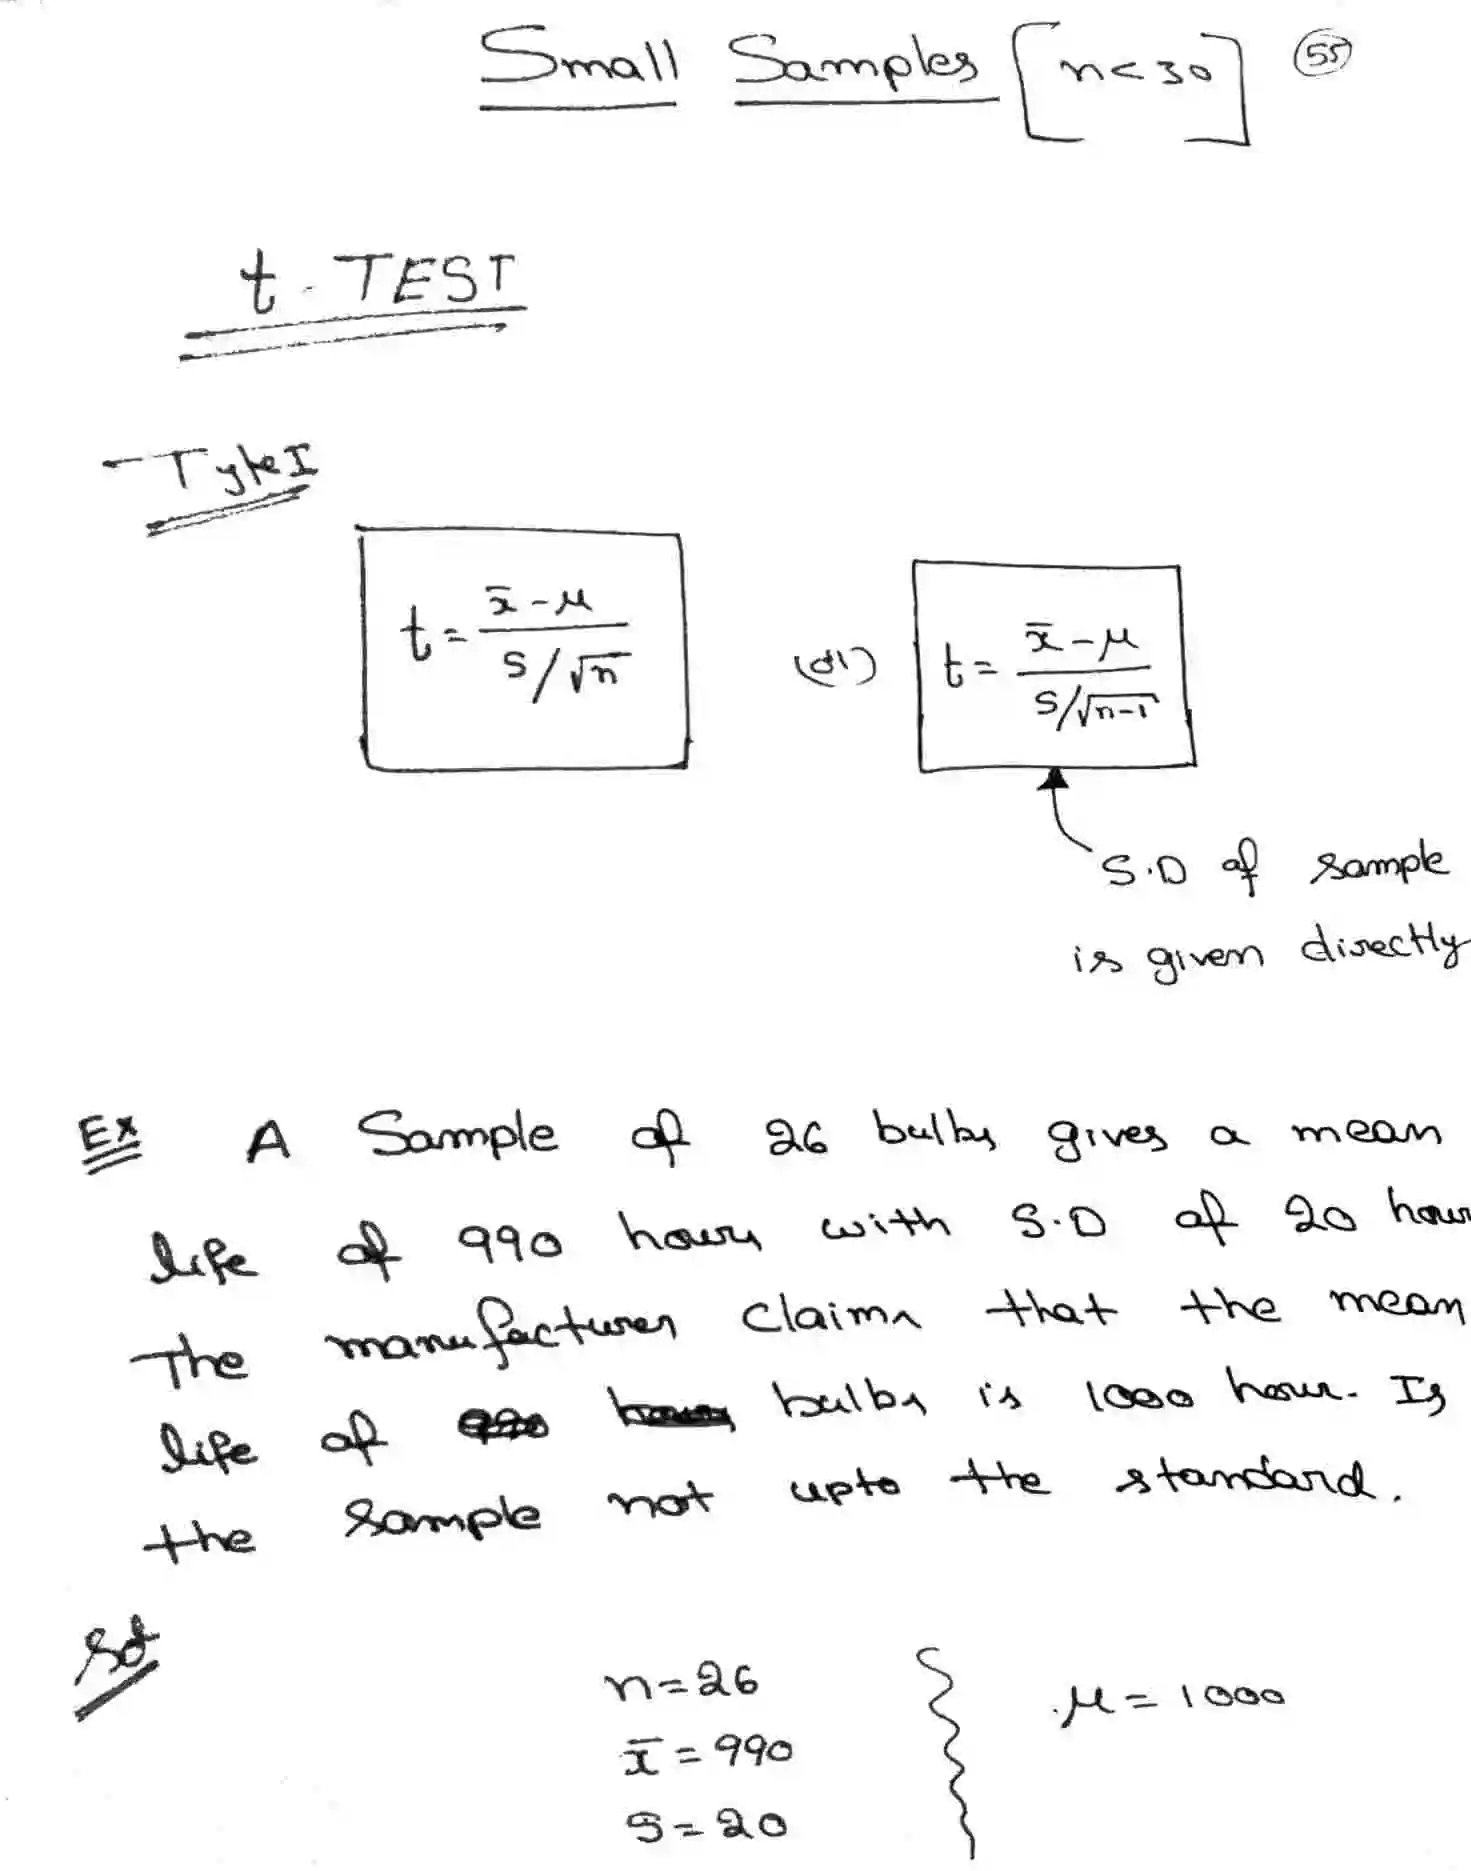 Small Samples [n<30] 55
t-TEST
Type I
t = x̄-μ / S/√n (or) t = x̄-μ / S/√n-1
S.D of sample
is given directly
Ex A Sample of 26 bulbs gives a mean
life of 990 hours with S.D of 20 hour
The manufacturer claims that the mean
life of bulbs is 1000 hour. Is
the sample not upto the standard.
Sol
n=26
μ=1000
x̄=990
S=20